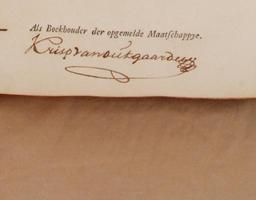 Als Boekhouder der opgemelde Maatschappye.
Krisp van outgaarden